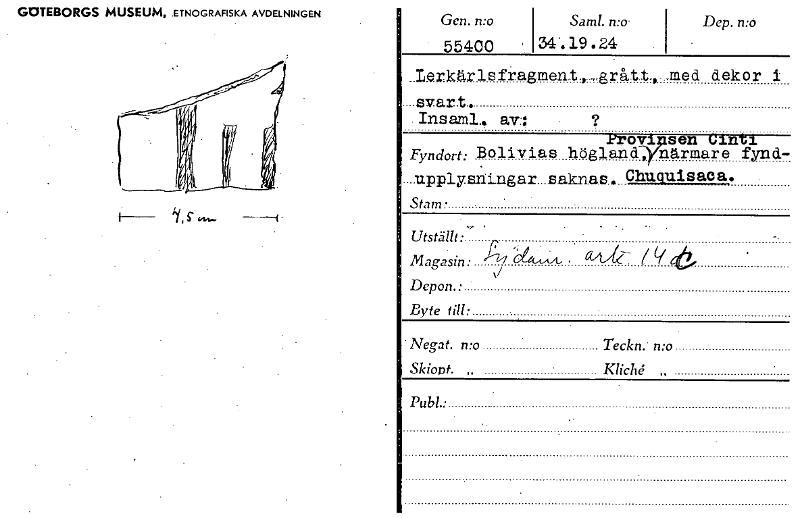 GÖTEBORGS MUSEUM, ETNOGRAFISKA AVDELNINGEN
4,5 cm
Gen. n:o Saml. n:o Dep. n:o
55400 34.19.24
Lerkärlsfragment, grått, med dekor i
svart.
Insaml. av: ?
Provinsen Cinti
Fyndort: Bolivias högland, närmare fynd-
upplysningar saknas. Chuquisaca.
Stam:
Utställt:
Magasin: Sydam. ark 14 c
Depon.:
Byte till:
Negat. n:o Teckn. n:o
Skiopt. „ Kliché „
Publ.: